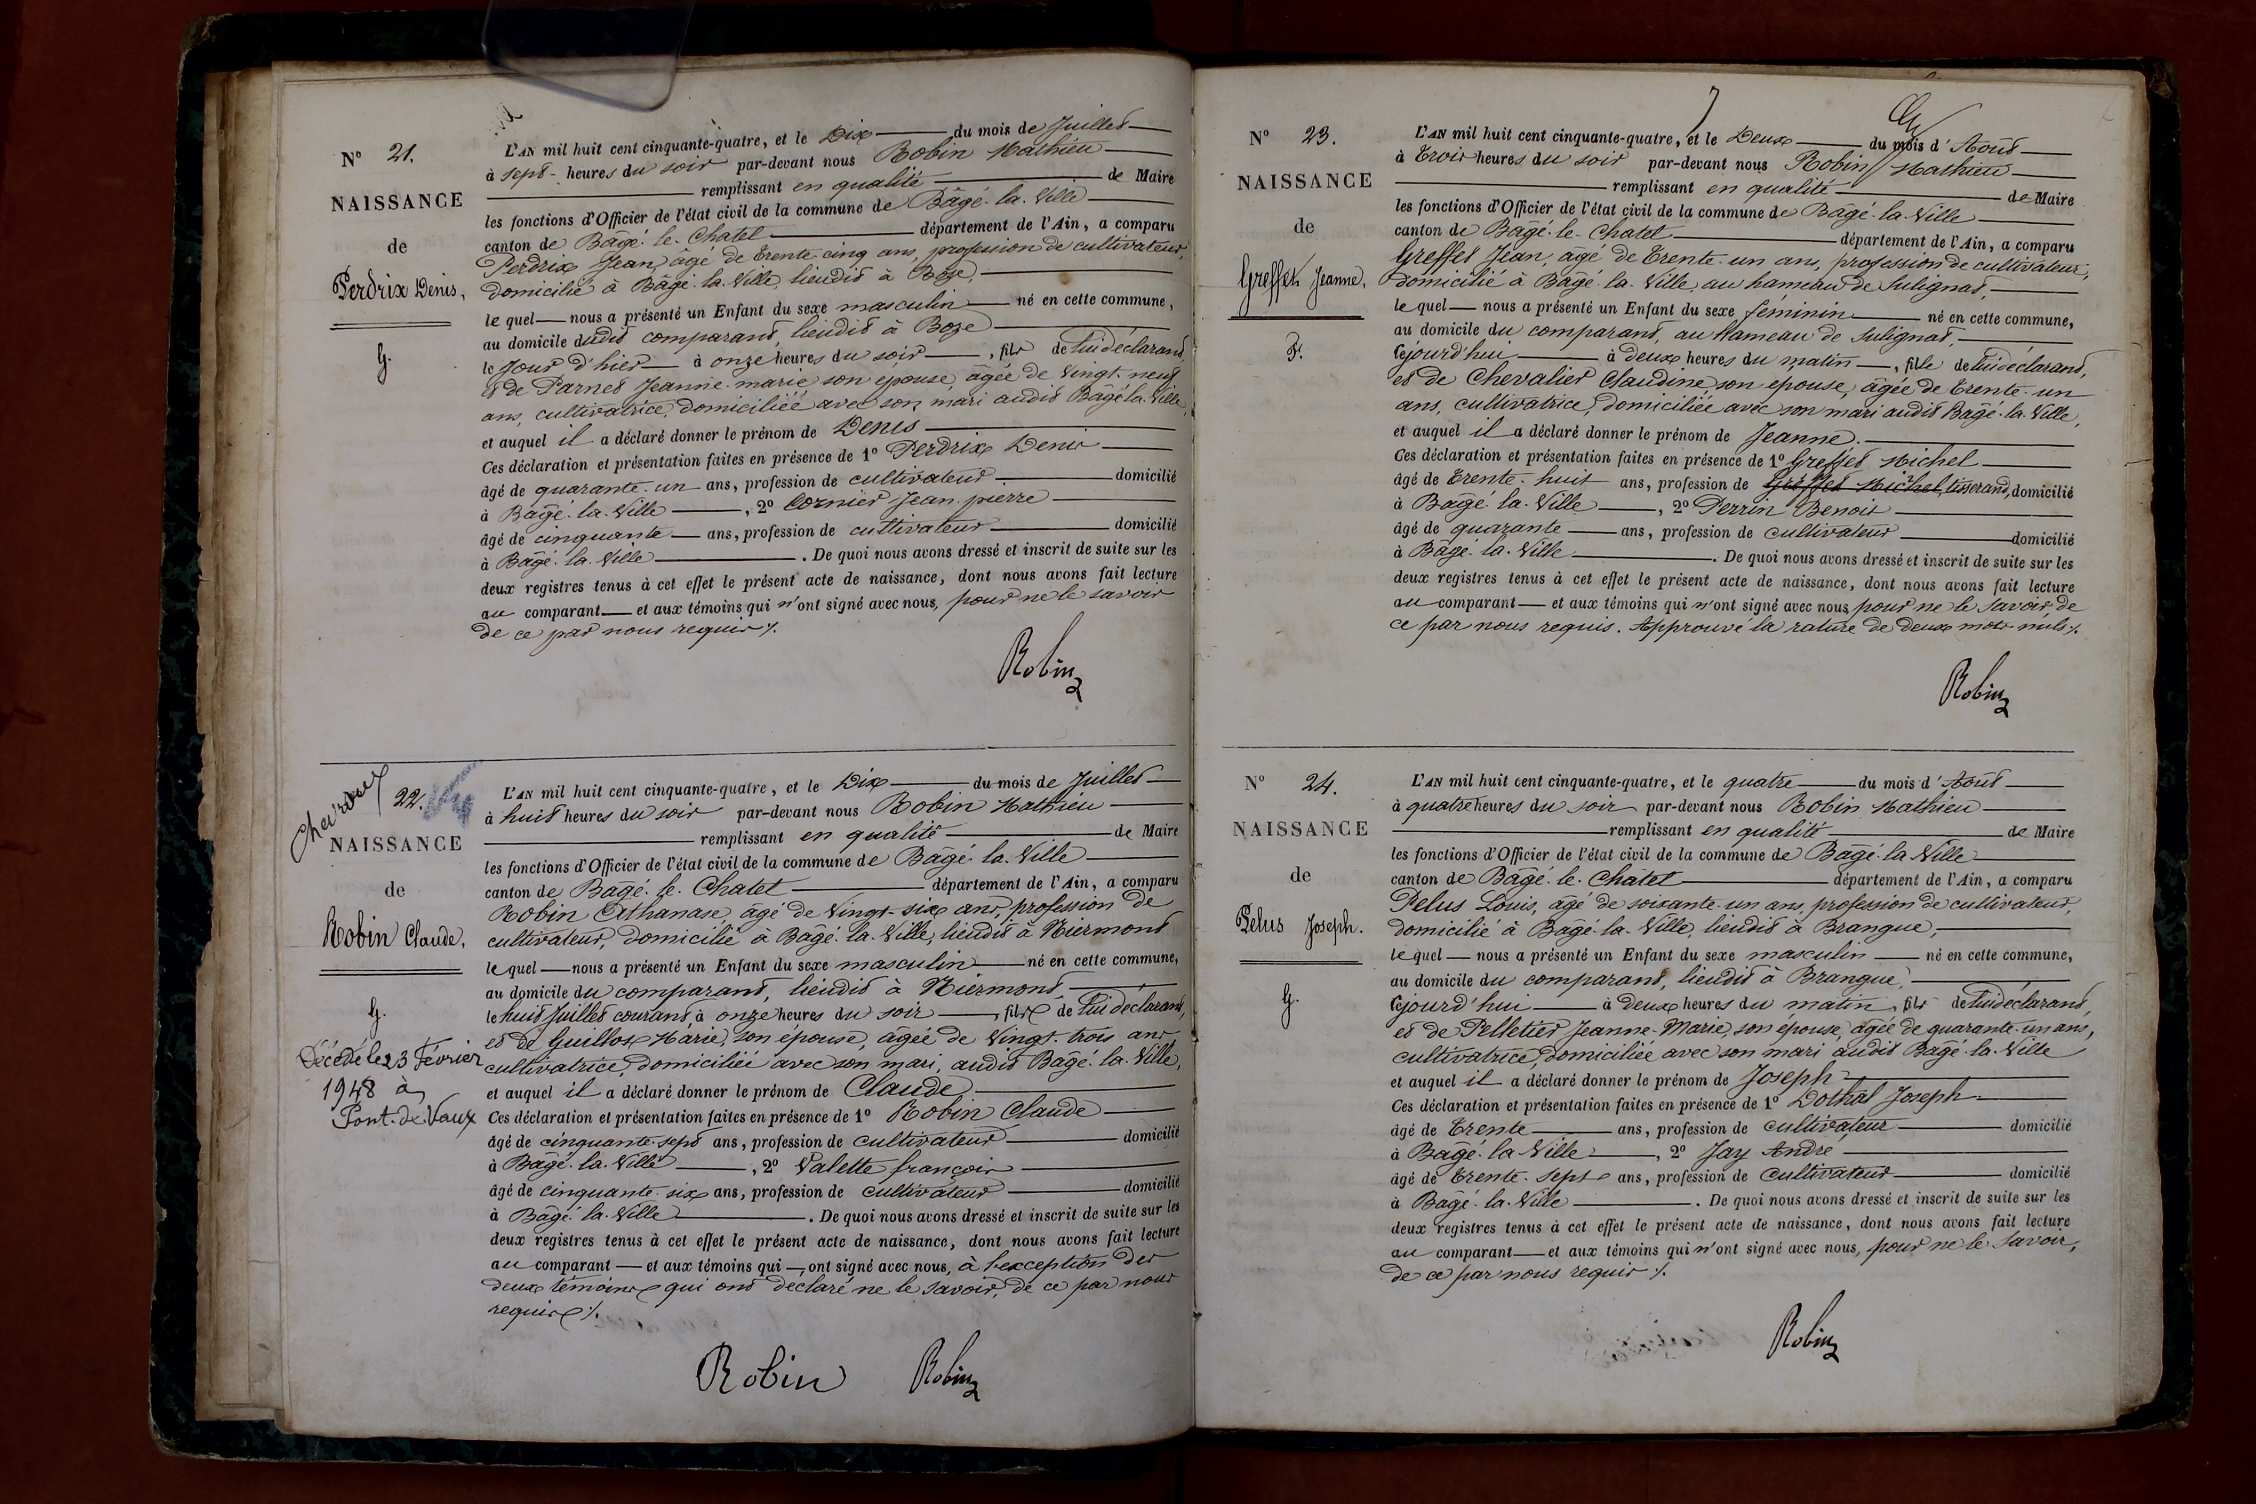 N° 21.
NAISSANCE
de
Perdrix Denis,
G.
L'AN mil huit cent cinquante-quatre, et le Dix du mois de Juillet
à sept heures du soir par-devant nous Robin Mathieu
remplissant en qualité de Maire
les fonctions d'Officier de l'état civil de la commune de Bâgé-la-Ville
canton de Bâgé-le-Chatel département de l'Ain, a comparu
Perdrix Jean, âgé de trente-cinq ans, profession de cultivateur,
domicilié à Bâgé-la-Ville, lieudit à Boze,
lequel nous a présenté un Enfant du sexe masculin né en cette commune,
au domicile dudit comparant, lieudit à Boze
le Jour d'hier à onze heures du soir, fils de lui déclarant,
et de Parnet Jeanne-marie son épouse, âgée de vingt-neuf
ans, cultivatrice, domiciliéé avec son mari audit Bâgé la Ville,
et auquel il a déclaré donner le prénom de Denis
Ces déclaration et présentation faites en présence de 1° Perdrix Denis
âgé de quarante-un ans, profession de cultivateur domicilié
à Bâgé-la-Ville, 2° Cornier Jean-pierre
âgé de cinquante ans, profession de cultivateur domicilié
à Bâgé-la-Ville. De quoi nous avons dressé et inscrit de suite sur les
deux registres tenus à cet effet le présent acte de naissance, dont nous avons fait lecture
au comparant et aux témoins qui n'ont signé avec nous, pour ne le savoir
de ce par nous requis ./.
Robin
22.
NAISSANCE
de
Robin Claude,
G.
Décédé le 23 Février
1948 à
Pont-de-Vaux
L'AN mil huit cent cinquante-quatre, et le Dix du mois de Juillet
à huit heures du soir par-devant nous Robin Mathieu
remplissant en qualité de Maire
les fonctions d'Officier de l'état civil de la commune de Bâgé-la-Ville
canton de Bagé-le-Chatel département de l'Ain, a comparu
Robin Athanase, âgé de vingt-six ans, profession de
cultivateur, domicilié à Bâgé-la-Ville, lieudit à Niermont
lequel nous a présenté un Enfant du sexe masculin né en cette commune,
au domicile du comparant, lieudit à Niermont,
le huit Juillet courant à onze heures du soir, fils de lui déclarant,
et de Guillot Marie, son épouse, âgée de vingt-trois ans
cultivatrice, domiciliéé avec son mari, audit Bâgé-la-Ville,
et auquel il a déclaré donner le prénom de Claude
Ces déclaration et présentation faites en présence de 1° Robin Claude
âgé de cinquante-sept ans, profession de cultivateur domicilié
à Bâgé-la-Ville, 2° Valette françois
âgé de cinquante-six ans, profession de cultivateur domicilié
à Bâgé-la-Ville. De quoi nous avons dressé et inscrit de suite sur les
deux registres tenus à cet effet le présent acte de naissance, dont nous avons fait lecture
au comparant et aux témoins qui ont signé avec nous, à l'exception des
deux témoins qui ont declaré ne le savoir, de ce par nous
requis ./.
Robin Robin
7
N° 23.
NAISSANCE
de
Greffet Jeanne,
F.
L'AN mil huit cent cinquante-quatre, et le Deux du mois d'Août
à trois heures du soir par-devant nous Robin Mathieu
remplissant en qualité de Maire
les fonctions d'Officier de l'état civil de la commune de Bâgé-la-Ville
canton de Bâgé-le-Chatel département de l'Ain, a comparu
Greffet Jean, âgé de trente-un ans, profession de cultivateur,
domicilié à Bâgé-la-Ville, au hameau de Sulignat,
lequel nous a présenté un Enfant du sexe féminin né en cette commune,
au domicile du comparant, au hameau de Sulignat,
cejourd'hui à deux heures du matin, fille de lui déclarant,
et de Chevalier Claudine son épouse, âgée de trente-un
ans, cultivatrice, domiciliée avec son mari audit Bâgé-la-Ville,
et auquel il a déclaré donner le prénom de Jeanne.
Ces déclaration et présentation faites en présence de 1° Greffet Michel
âgé de trente-huit ans, profession de Greffet Michel, tisserand, domicilié
à Bâgé-la-Ville, 2° Perrin Benoit
âgé de quarante ans, profession de cultivateur domicilié
à Bâgé-la-Ville. De quoi nous avons dressé et inscrit de suite sur les
deux registres tenus à cet effet le présent acte de naissance, dont nous avons fait lecture
au comparant et aux témoins qui n'ont signé avec nous, pour ne le savoir, de
ce par nous requis. Approuvé la rature de deux mots nuls ./.
Robin
N° 24.
NAISSANCE
de
Pelus Joseph.
G.
L'AN mil huit cent cinquante-quatre, et le quatre du mois d'Août
à quatre heures du soir par-devant nous Robin Mathieu
remplissant en qualité de Maire
les fonctions d'Officier de l'état civil de la commune de Bâgé-la-Ville
canton de Bâgé-le-Châtel département de l'Ain, a comparu
Pelus Louis, âgé de soixante-un ans, profession de cultivateur,
domicilié à Bâgé-la-Ville, lieudit à Brangue,
lequel nous a présenté un Enfant du sexe masculin né en cette commune,
au domicile du comparant, lieudit à Brangue,
cejourd'hui à deux heures du matin, fils de lui déclarant,
et de Pelletier Jeanne-Marie, son épouse, âgée de quarante-un ans,
cultivatrice, domiciliéé avec son mari audit Bâgé-la-Ville
et auquel il a déclaré donner le prénom de Joseph
Ces déclaration et présentation faites en présence de 1° Dothal Joseph
âgé de trente ans, profession de cultivateur domicilié
à Bâgé-la-Ville, 2° Jay André
âgé de trente-sept ans, profession de cultivateur domicilié
à Bâgé-la-Ville. De quoi nous avons dressé et inscrit de suite sur les
deux registres tenus à cet effet le présent acte de naissance, dont nous avons fait lecture
au comparant et aux témoins qui n'ont signé avec nous, pour ne le savoir,
de ce par nous requis ./.
Robin